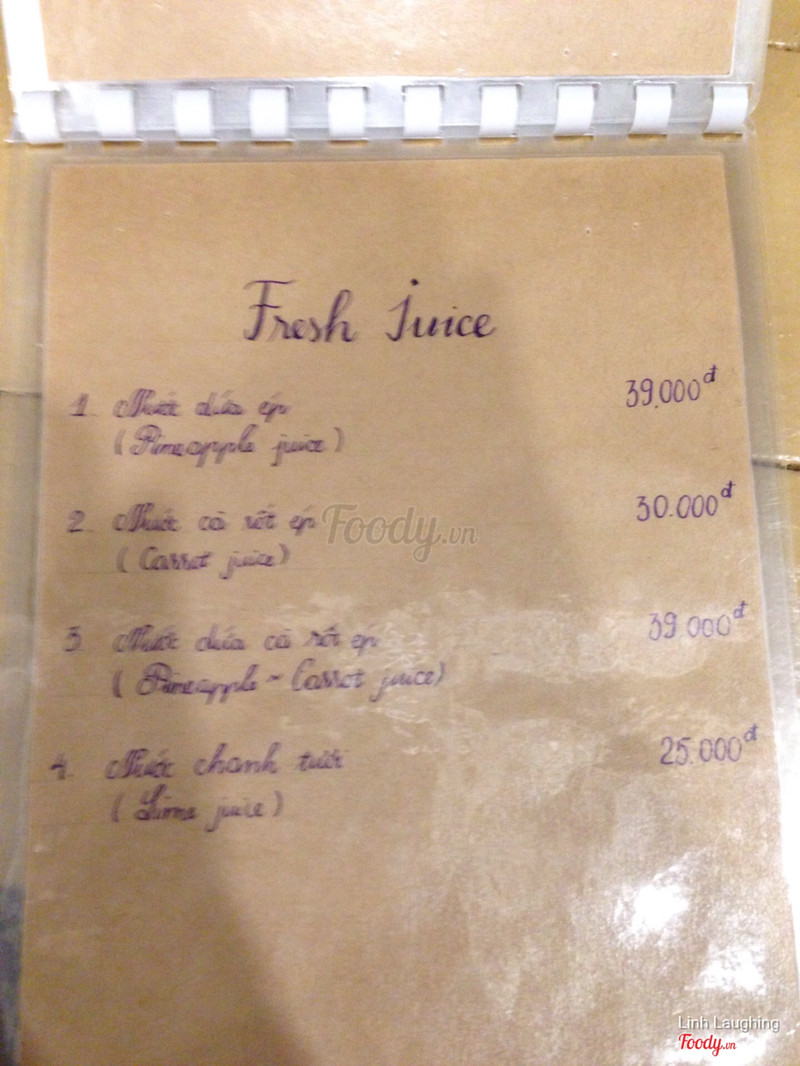 Fresh Juice
1. Nước dứa ép 39.000đ
(Pineapple juice)
2. Nước cà rốt ép 30.000đ
(Carrot juice)
3. Nước dứa cà rốt ép 39.000đ
(Pineapple ~ Carrot juice)
4. Nước chanh tươi 25.000đ
(Lime juice)
Foody.vn
Linh Laughing
Foody.vn